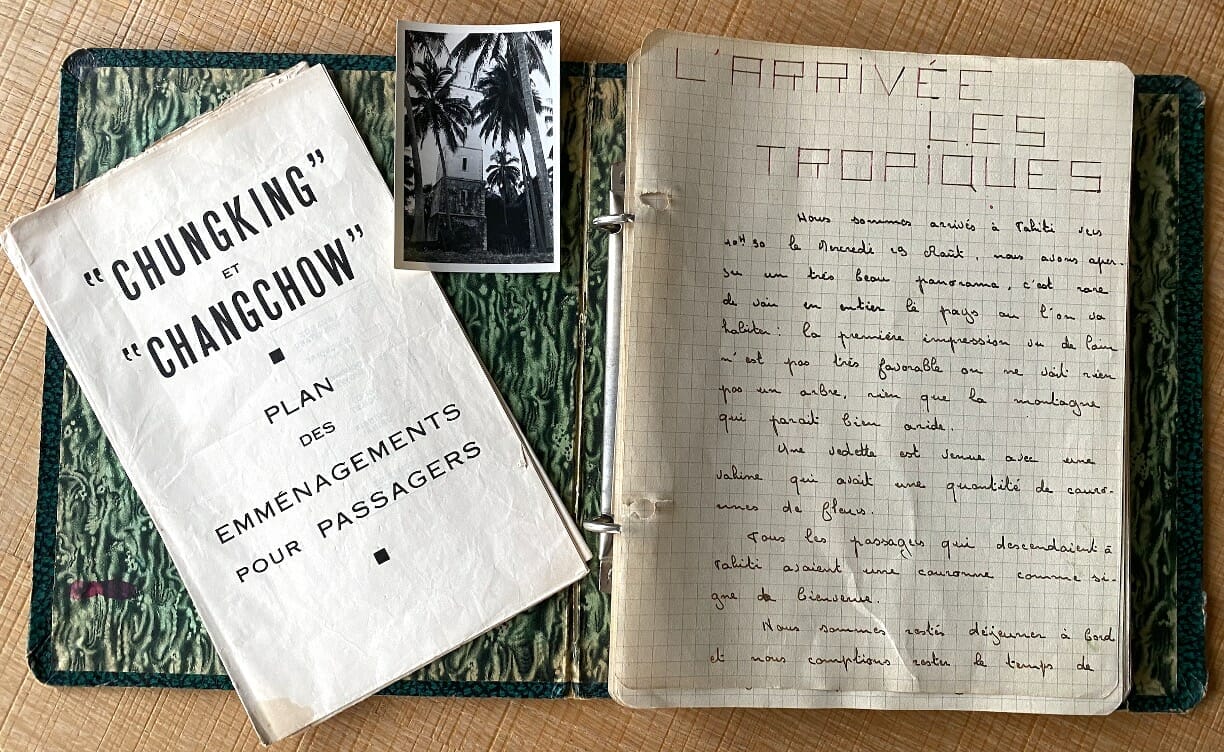 "CHUNGKING"
ET
"CHANGCHOW"
PLAN
DES
EMMÉNAGEMENTS
POUR PASSAGERS
L'ARRIVÉE
LES
TROPIQUES
Nous sommes arrivés à Tahiti vers
10H30 le Mercredi 29 Août, nous avons aper-
su un très beau panorama, c'est rare
de voir en entier le pays ou l'on va
habiter : la première impression vu de loin
n'est pas très favorable on ne voit rien
pas un arbre, rien que la montagne
qui parait bien aride.
Une vedette est venue avec une
vahine qui avait une quantité de couro-
nnes de fleurs.
Tous les passagers qui descendaient à
Tahiti avaient une couronne comme si-
gne de bienvenue.
Nous sommes restés déjeuner à bord
et nous comptions rester le temps de